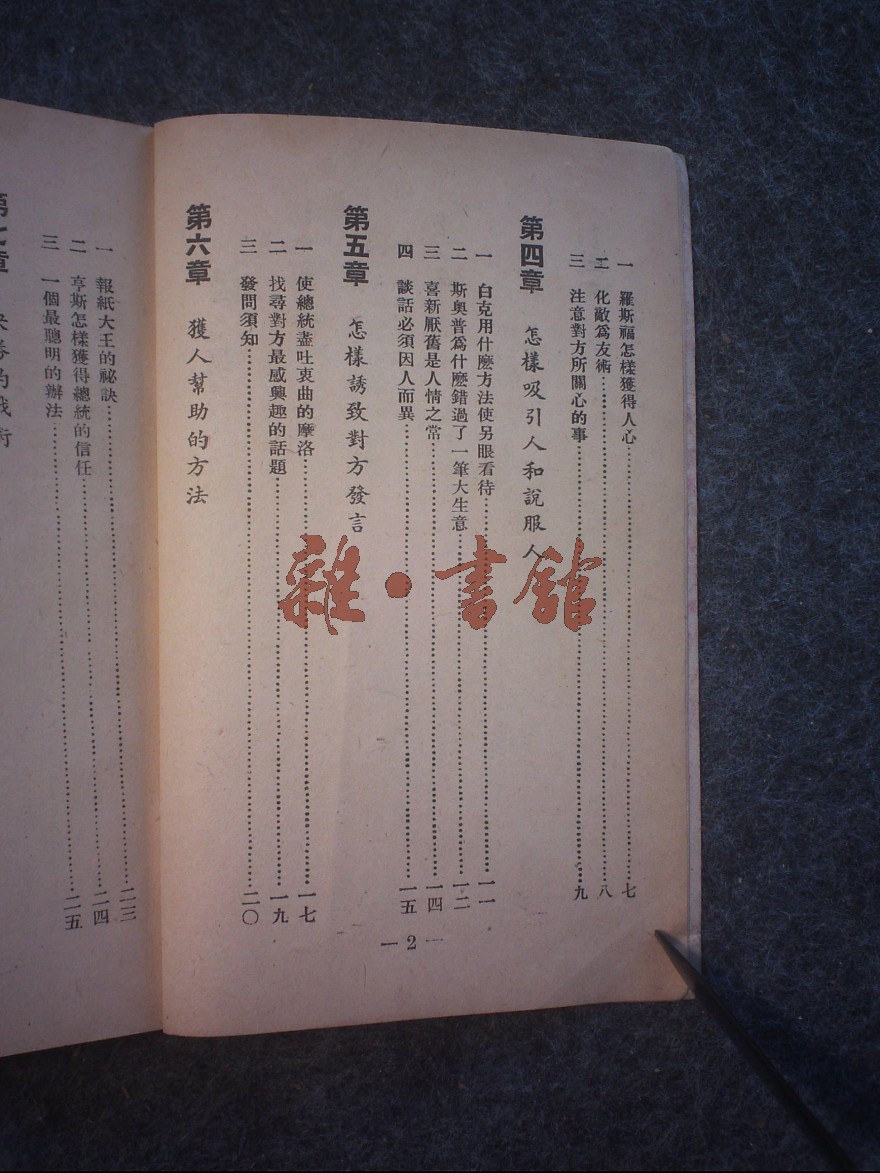 一 羅斯福怎樣獲得人心……七
二 化敵為友術……八
三 注意對方所關心的事……九
第四章 怎樣吸引人和說服人
一 白克用什麼方法使另眼看待……一一
二 斯奧普為什麼錯過了一筆大生意……一二
三 喜新厭舊是人情之常……一四
四 談話必須因人而異……一五
第五章 怎樣誘致對方發言
一 使總統盡吐衷曲的摩洛……一七
二 找尋對方最感興趣的話題……一九
三 發問須知……二〇
第六章 獲人幫助的方法
一 報紙大王的祕訣……二三
二 亨斯怎樣獲得總統的信任……二四
三 一個最聰明的辦法……二五
— 2 —
雜·書館